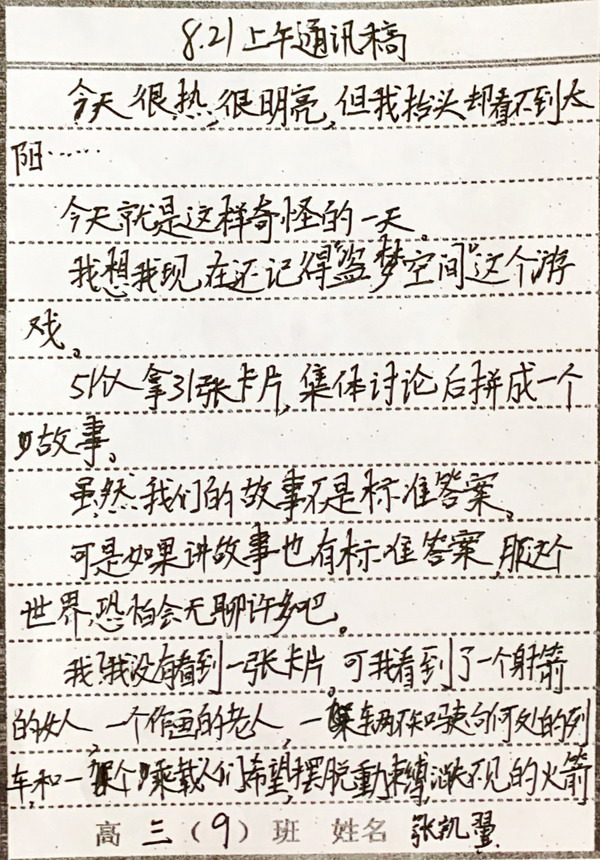 8.21上午通讯稿
今天很热,很明亮,但我抬头却看不到太
阳……
今天就是这样奇怪的一天。
我想我现在还记得"盗梦空间"这个游
戏。
51个人拿31张卡片,集体讨论后拼成一个
故事。
虽然我们的故事不是标准答案。
可是如果讲故事也有标准答案,那这个
世界,恐怕会无聊许多吧。
我没有看到一张卡片。可我看到了一个射箭
的女人,一个作画的老人,一辆不知驶向何处的列
车,和一个乘载人们希望,摆脱重力束缚,消失不见的火箭
高三(9)班 姓名 张凯